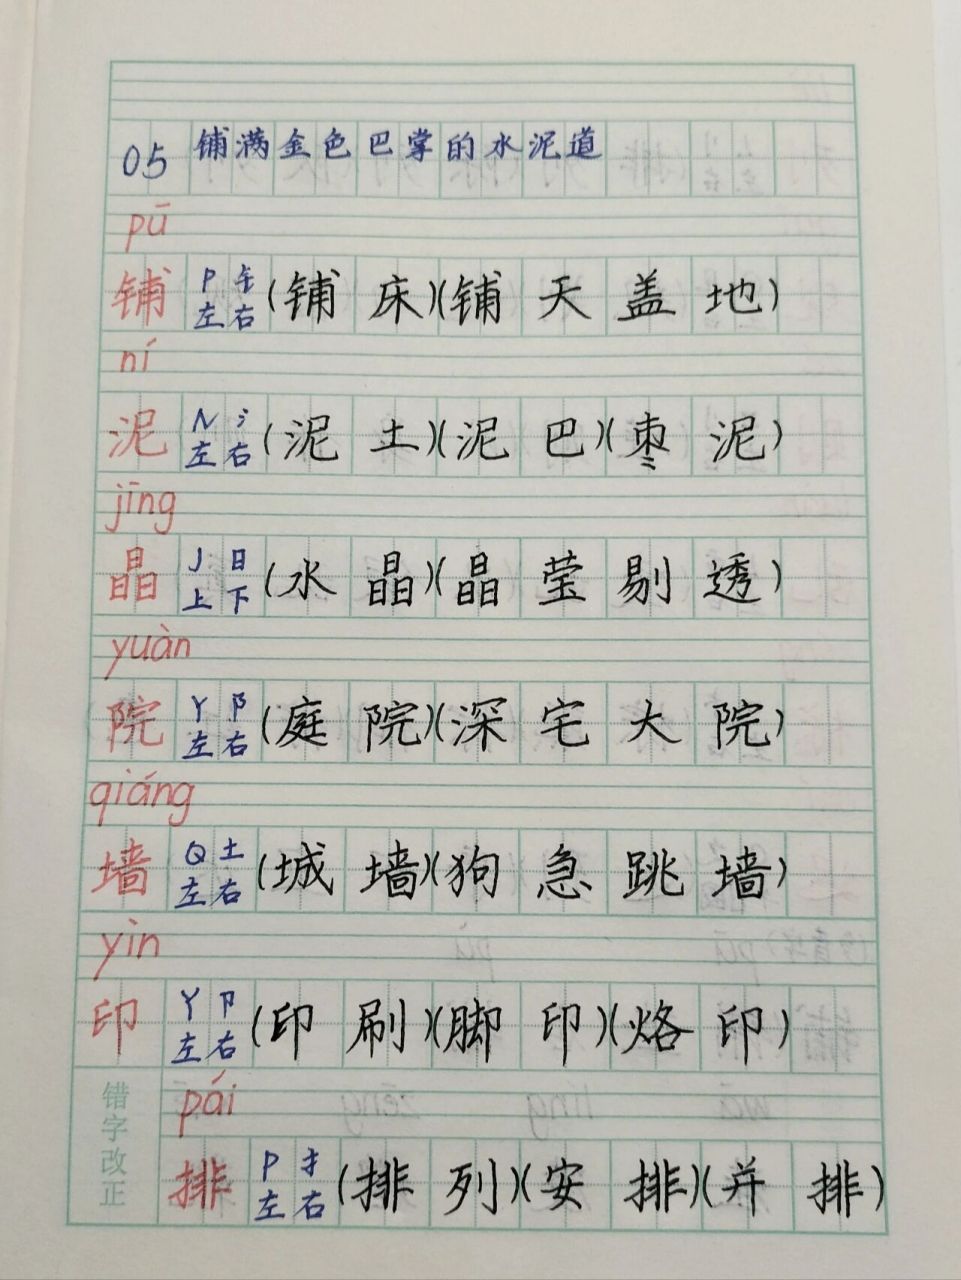 05 铺满金色巴掌的水泥道
pū
铺 P 钅 左 右 (铺床)(铺天盖地)
ní
泥 N 氵 左 右 (泥土)(泥巴)(枣泥)
jīng
晶 J 日 上 下 (水晶)(晶莹剔透)
yuàn
院 Y 阝 左 右 (庭院)(深宅大院)
qiáng
墙 Q 土 左 右 (城墙)(狗急跳墙)
yìn
印 Y 卩 左 右 (印刷)(脚印)(烙印)
错字改正
pái
排 P 扌 左 右 (排列)(安排)(并排)